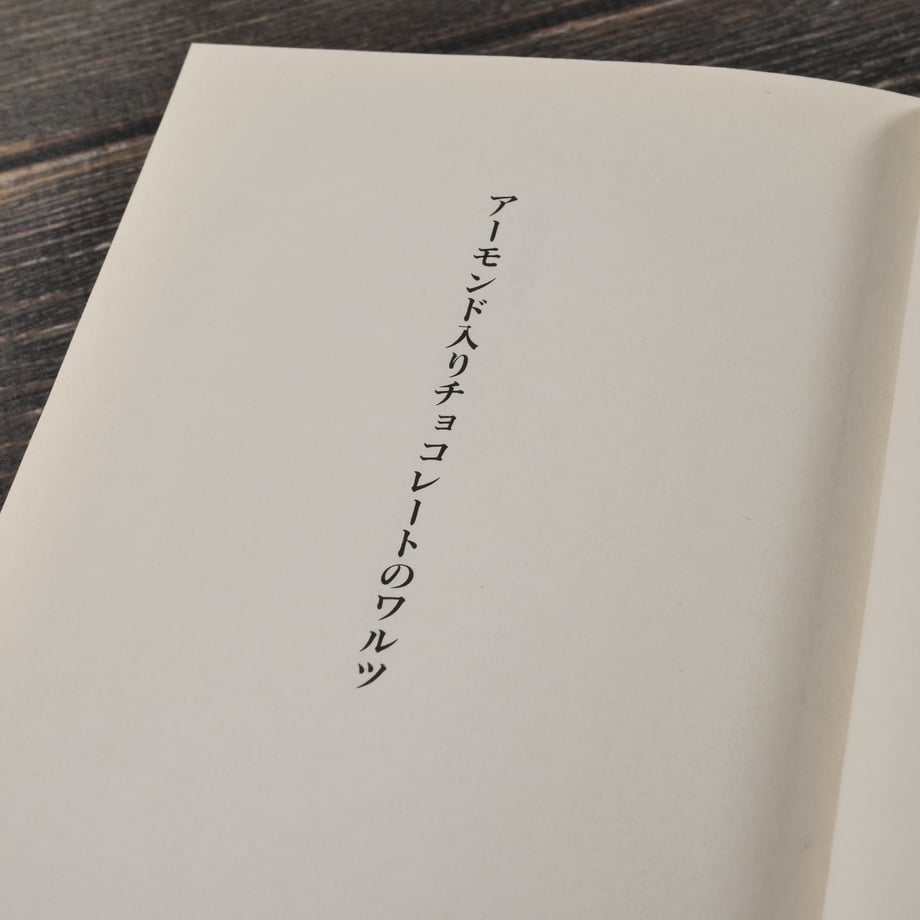 アーモンド入りチョコレートのワルツ